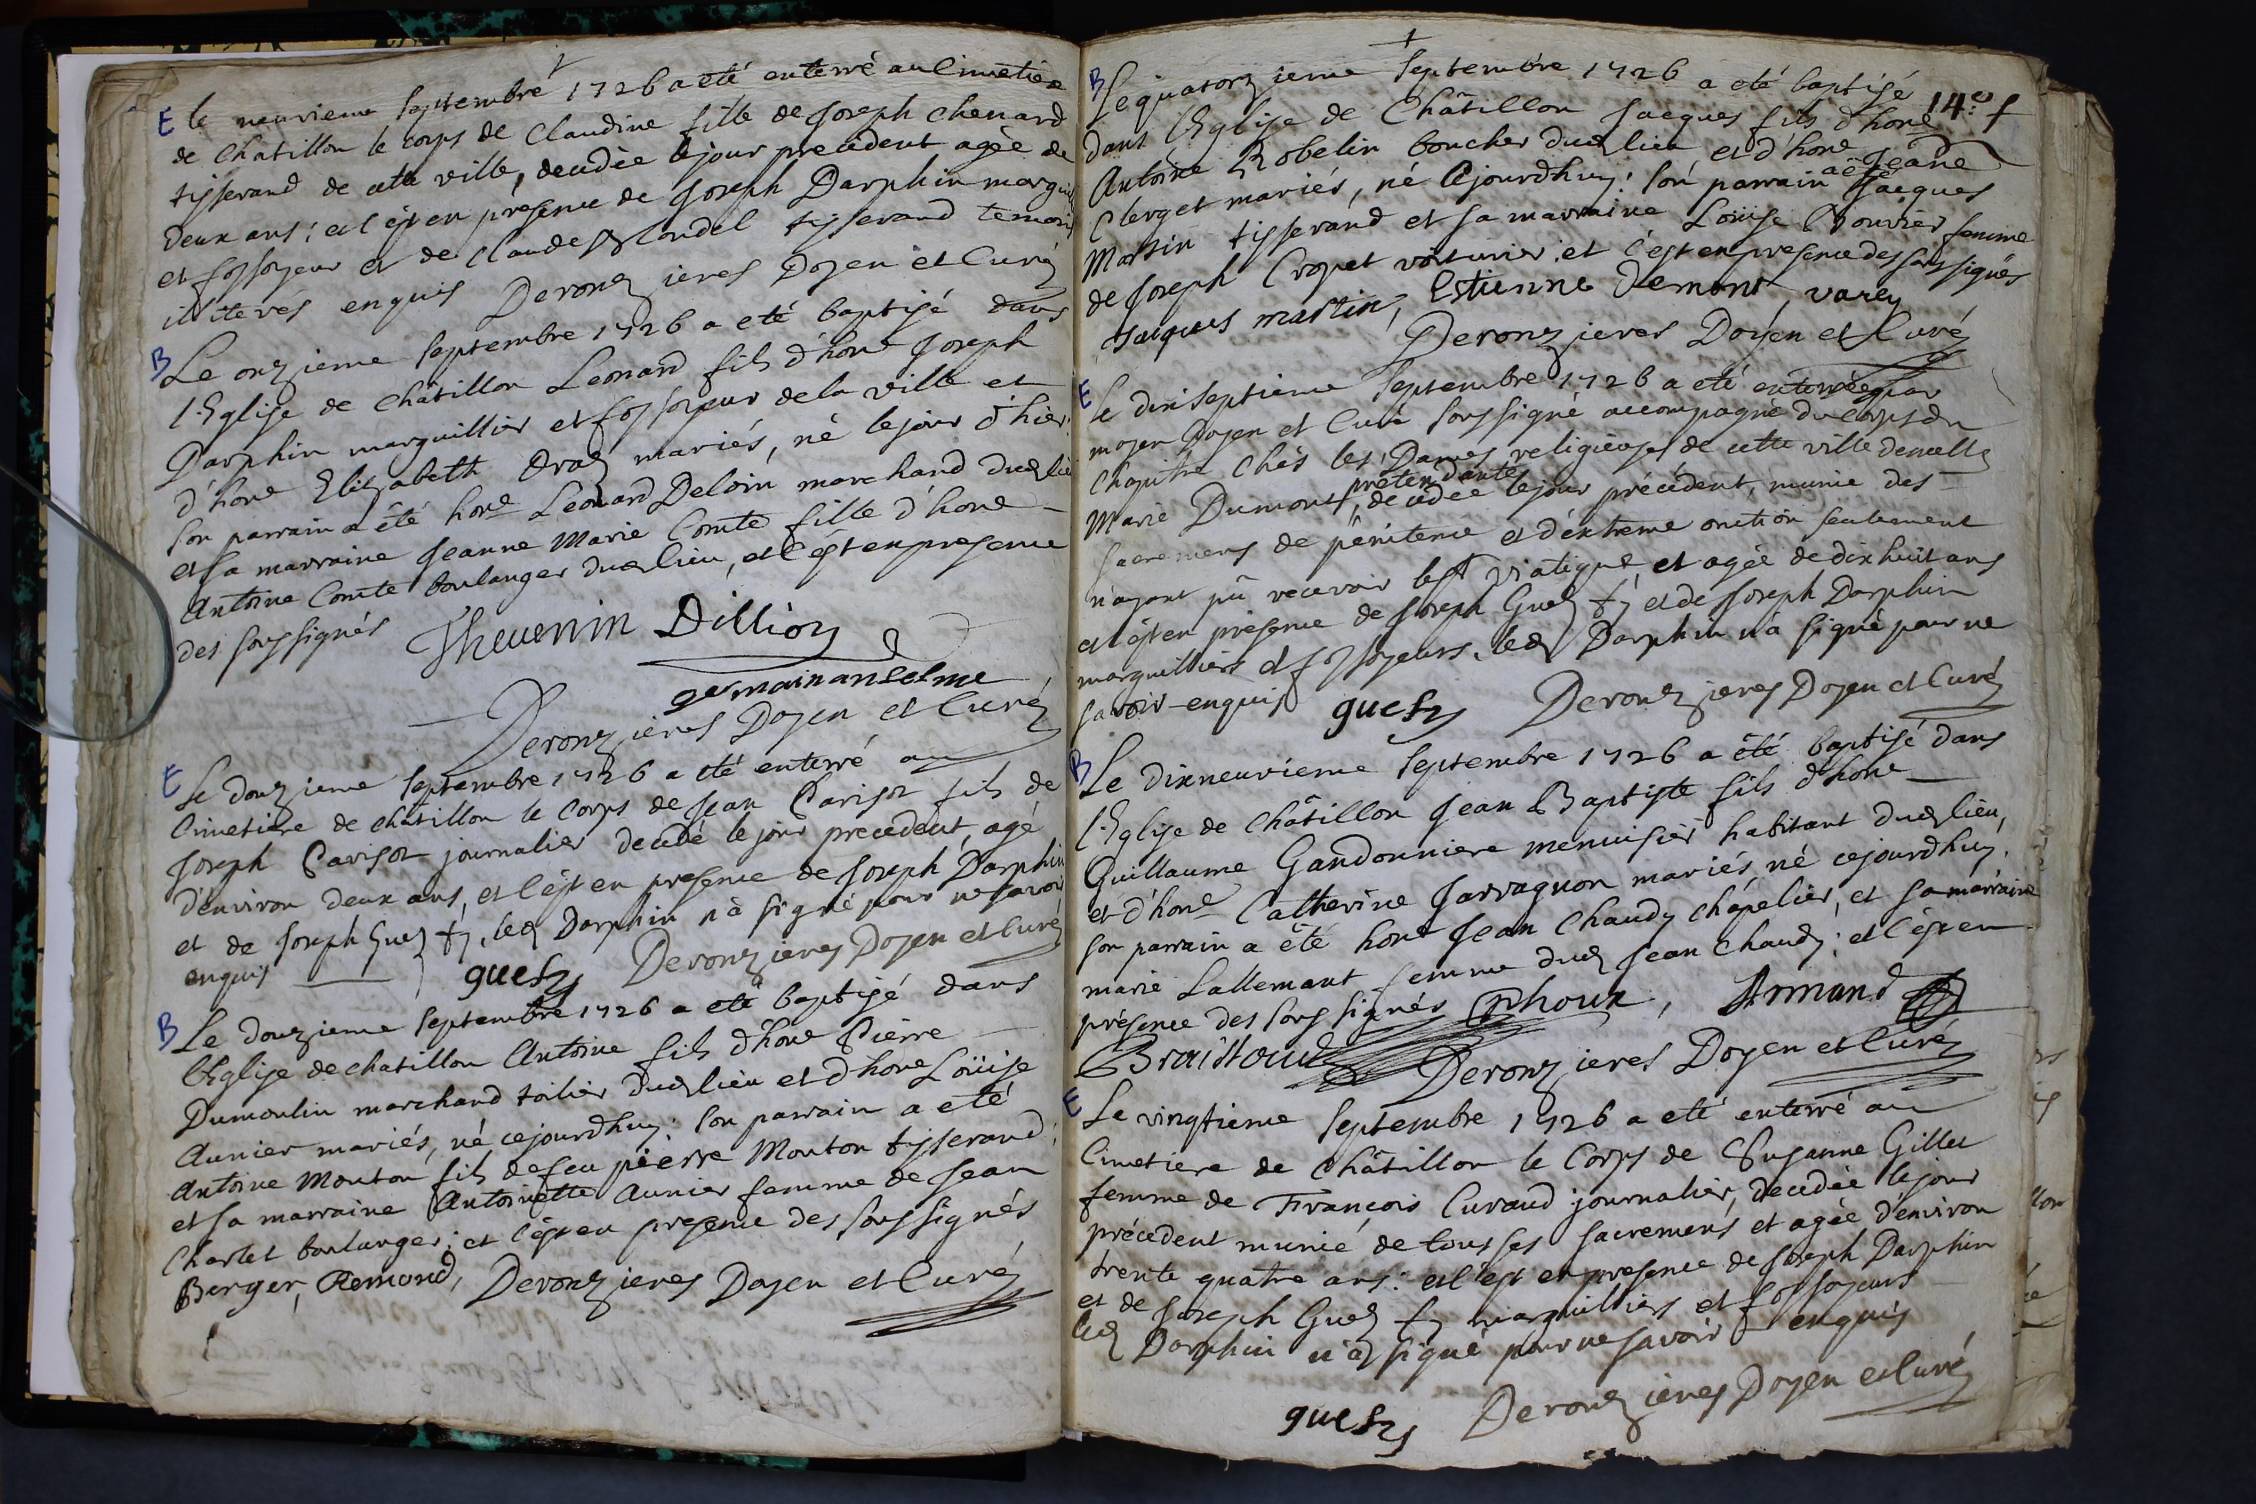 E le neuvieme septembre 1726 a eté enterré au Cimetiere
de Chatillon le corps de Claudine fille de Joseph Chenard
tisserand de cette ville, decedée le jour precedent agée de
deux ans: et c'est en presence de Joseph Darphin marguil
et fossoyeur et de Claude Blondel tisserand temoins
iliterés enquis Deronzieres Doyen et Curé
B Le onzieme septembre 1726 a eté baptisé dans
l'Eglise de Châtillon Leonard fils d'hone Joseph
Darphin marguillier et fossoyeur de la ville et
d'hone Elizabeth Oraz mariés, né le jour d'hier:
son parrain a été hone Leonard Deloin marchand dud lieu
et sa marraine Jeanne Marie Comte fille d'hone
Antoine Comte boulanger dud lieu, et c'est en presence
des soussignés Thevenin Dillion
germain anselme
Deronzieres Doyen et Curé
E Le douzieme septembre 1726 a eté enterré au
Cimetiere de chatillon le Corps de Jean Parisot fils de
Joseph Parisot journalier decedé le jour precedent, agé
d'environ deux ans, et c'est en presence de Joseph Darphin
et de Joseph Guez fy, led Darphin n'à signé pour ne savoir
enquis guesz Deronzieres Doyen et Curé
B Le douzieme septembre 1726 a eté baptisé dans
l'Eglise de chatillon Antoine fils d'hone Pierre
Dumoulin marchand toilier dud lieu et d'hone Loüise
Aunier mariés, né cejourdhuy: son parrain a eté
Antoine Mouton fils de feu pierre Mouton tisserand:
et sa marraine Antoinette Aunier femme de Jean
Charlet boulanger: et c'est en presence des soussignés
Berger, Remond, Deronzieres Doyen et Curé
14.e f
B Le quatorzieme septembre 1726 a eté baptisé
dans l'Eglise de Châtillon Jacques fils d'hone
Antoine Robelin boucher dud lieu et d'hone Jeane
Clerget mariés, né cejourdhuy: son parrain a été Jacques
Martin tisserand et sa marraine Loüise Bouvier femme
de Joseph Cropet voiturier: et c'est en presence des soussignés
Jacques martin, Estienne Demont, varey
Deronzieres Doyen et Curé
E le dixseptieme septembre 1726 a eté enterrée par
moyen Doyen et Curé soussigné accompagné du corps du
Chapitre chés les Dames religieuses de cette ville demelle
Marie Dumont prétendante, decedée le jour précédent, munie des
sacremens de pénitence et d'extreme onction seulement
n'ayant pû recevoir le st Viatique, et agée de dix huit ans
et c'est en présence de Joseph Guez fy et de Joseph Darphin
marguilliers et fossoyeurs, led Darphin n'a signé pour ne
savoir enquis guesz Deronzieres Doyen et Curé
B Le dixneuvieme septembre 1726 a été baptisé dans
l'Eglise de Châtillon Jean Baptiste fils d'hone
Guillaume Gandonniere menuisier habitant dud lieu,
et d'hone Catherine Jarvagnon mariés, né cejourdhuy,
son parrain a été hone Jean Chaudy chapelier, et sa marraine
marie Lallemant femme dud Jean Chaudy: et c'est en
présence des soussignés Phoux, Armand
Braittoud Deronzieres Doyen et Curé
E Le vingtieme septembre 1726 a eté enterré au
Cimetiere de Châtillon le Corps de Susanne Gillet
femme de François Curaud journalier, decedée le jour
précedent munié de tous ses sacremens et agée d'environ
trente quatre ans: et c'est en presence de Joseph Darphin
et de Joseph Guez fy marguilliers et fossoyeurs
led Darphin n'a signé pour ne savoir enquis
guesz Deronzieres Doyen et Curé